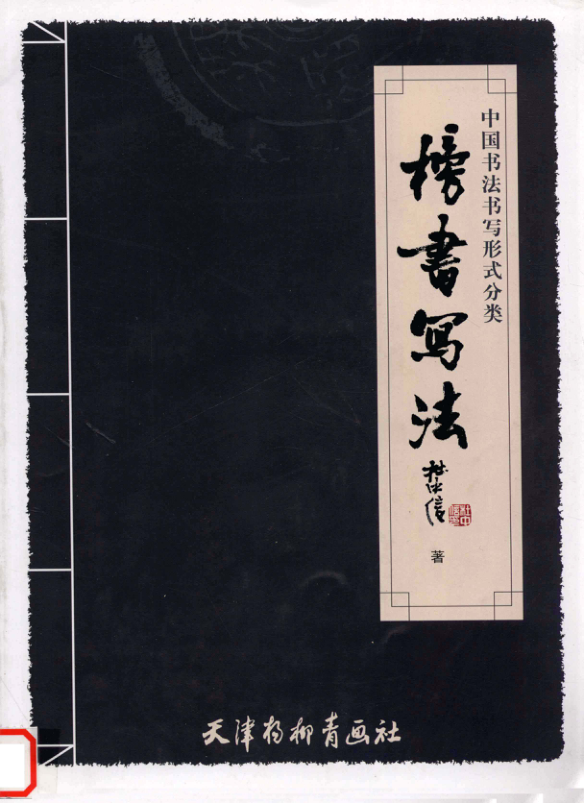 中国书法书写形式分类
榜書寫法
杜中信
著
天津杨柳青画社